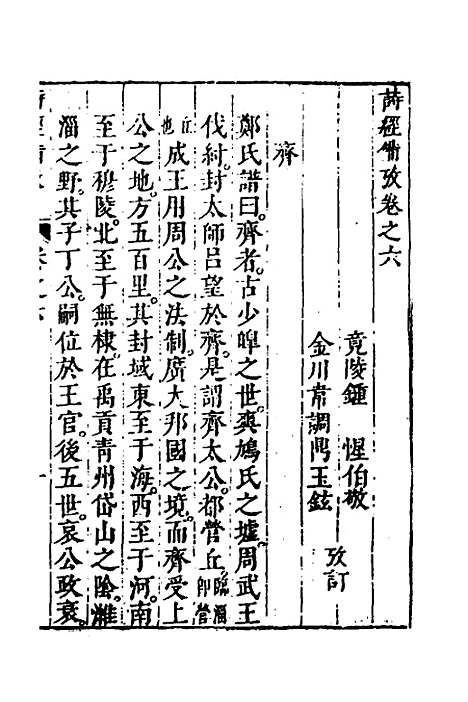 詩經備攷卷之六
竟陵鍾　惺伯敬
金川韋調鼎玉鉉
攷訂
齊
鄭氏譜曰。齊者。古少皥之世。爽鳩氏之墟。周武王
伐紂。封太師呂望於齊。是謂齊太公。都營丘。臨淄即營
丘也 成王用周公之法制。廣大邦國之境。而齊受上
公之地。方五百里。其封域東至于海。西至于河。南
至于穆陵。北至于無棣。在禹貢青州岱山之陰。濰
淄之野。其子丁公。嗣位於王官。後五世。哀公政衰。